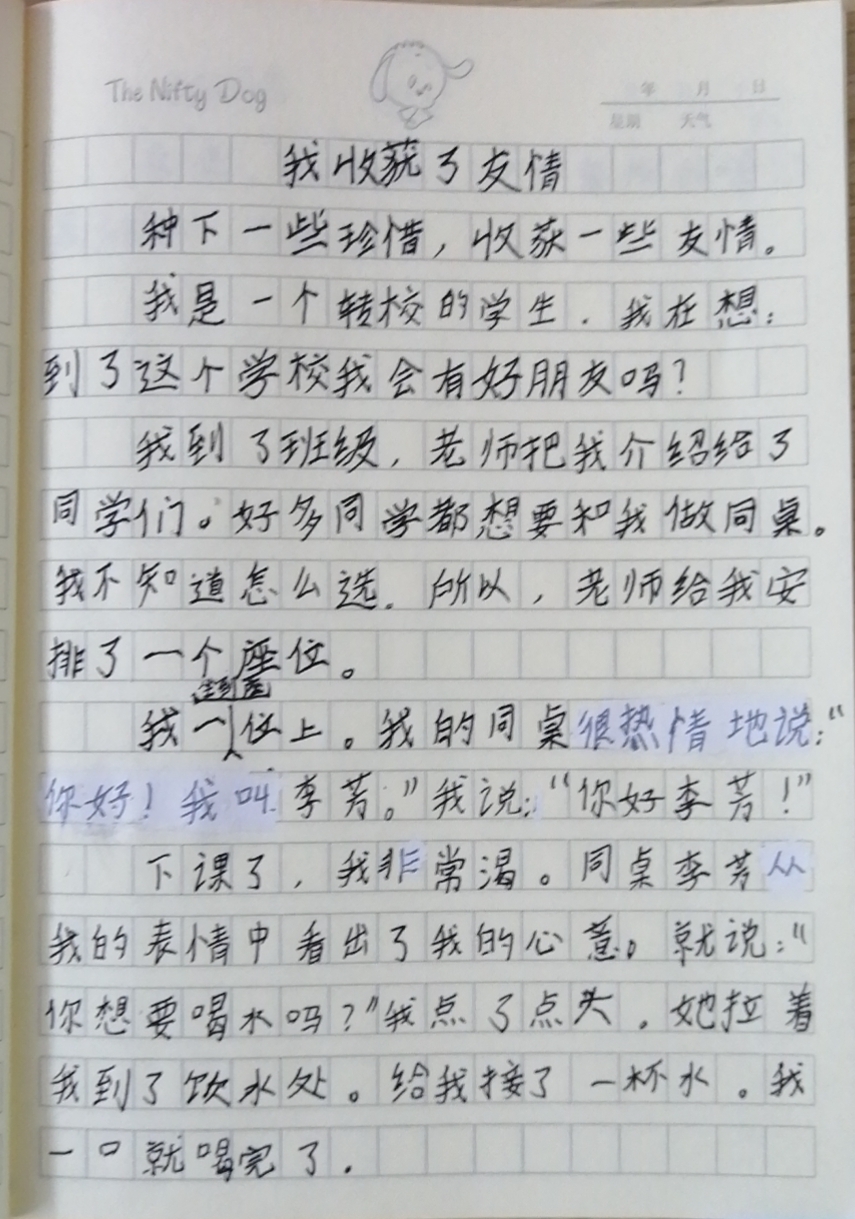 The Nifty Dog
年 月 日
星期 天气
我收获了友情
种下一些珍惜，收获一些友情。
我是一个转校的学生．我在想：
到了这个学校我会有好朋友吗？
我到了班级，老师把我介绍给了
同学们。好多同学都想要和我做同桌。
我不知道怎么选．所以，老师给我安
排了一个座位。
走到座
我一位上。我的同桌很热情地说：“
你好！我叫李芳。”我说：“你好李芳！”
下课了，我非常渴。同桌李芳从
我的表情中看出了我的心意。就说：“
你想要喝水吗？”我点了点头．她拉着
我到了饮水处。给我接了一杯水。我
一口就喝完了．